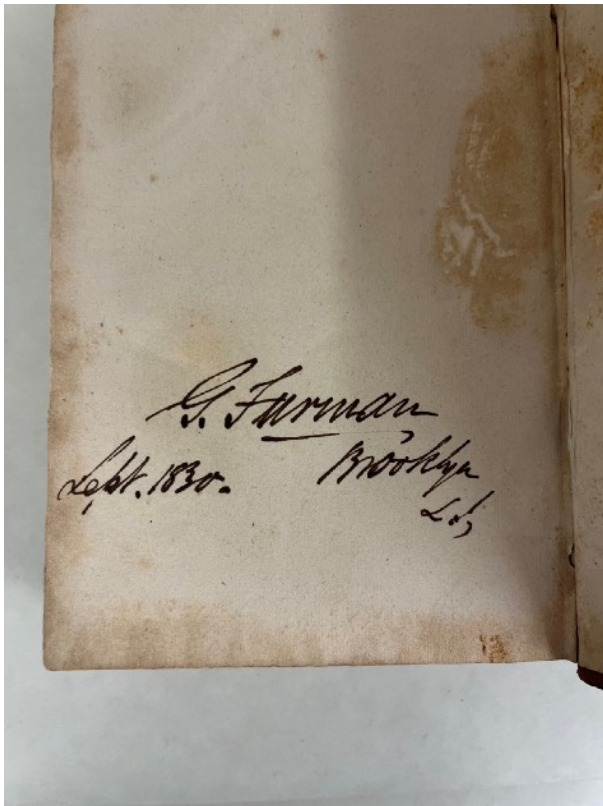 G. Furman
Sept. 1830. Brooklyn
L.I,